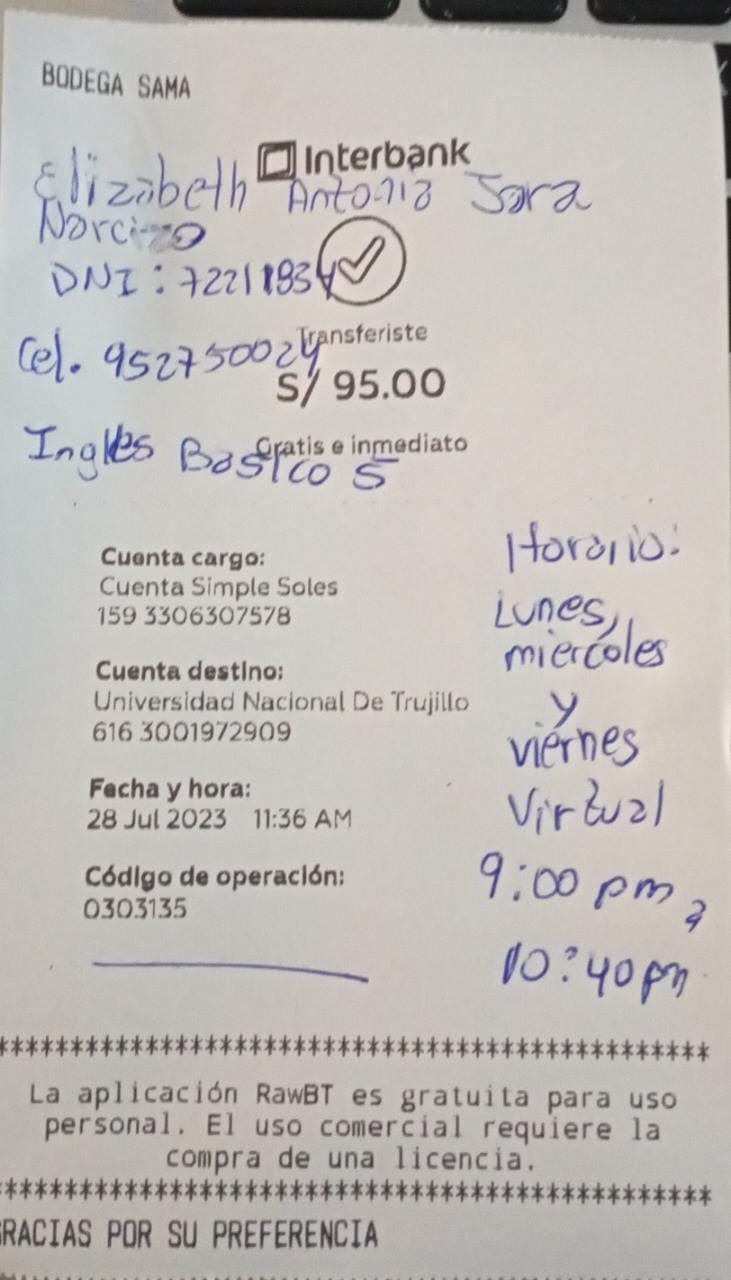 BODEGA SAMA
Interbank
Elizabeth Antonia Jara
Narcizo
DNI: 72211834
Transferiste
Cel. 952750024
S/ 95.00
Gratis e inmediato
Ingles Basico 5
Cuenta cargo:
Cuenta Simple Soles
159 3306307578
Cuenta destino:
Universidad Nacional De Trujillo
616 3001972909
Fecha y hora:
28 Jul 2023 11:36 AM
Código de operación:
0303135
Horario:
Lunes,
miercoles
y
viernes
Virtual
9:00 pm a
10:40 pm
************************************************
La aplicación RawBT es gratuita para uso
personal. El uso comercial requiere la
compra de una licencia.
************************************************
GRACIAS POR SU PREFERENCIA